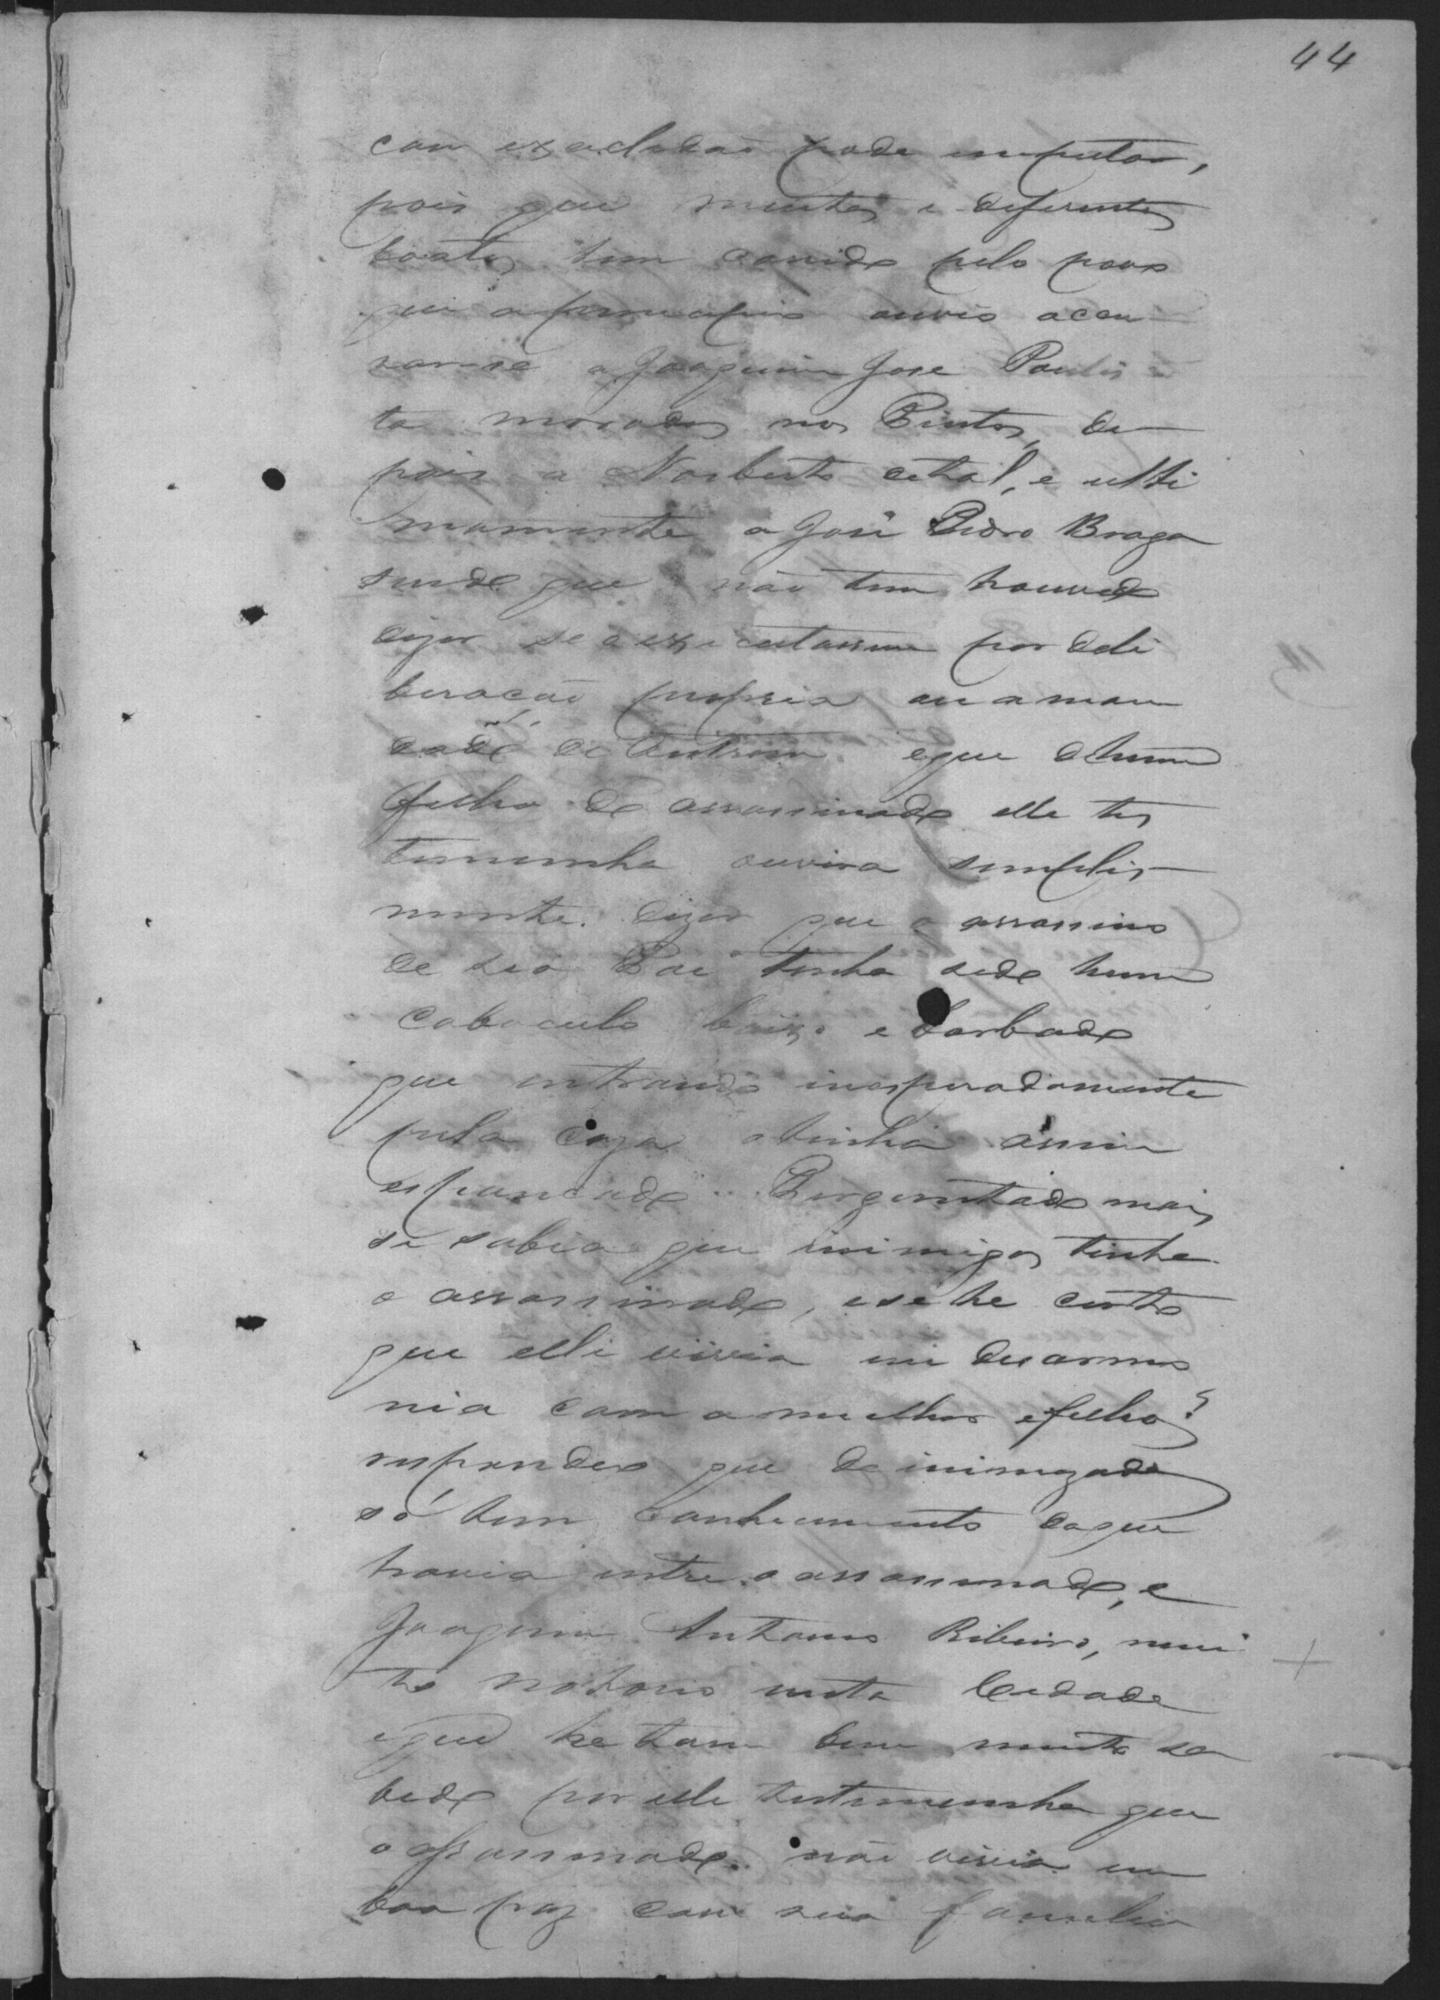 44
com exactidaõ pode imputar,
pois que muitos e deferentes
boatos tem corrido pelo povo
que a principio ouvio accu
sarse a Joaquim José Paulis
ta morador nos Pintos, de
pois a Norberto de tal, e ulti
mamente a José Pedro Braga
sendo que não tem houvido
dizer se o executassem por deli
beração propria ou a man
dado de outrem e que a hum
filho do assassinado elle tes
temunha ouvira simples
mente dizer que o assassino
de seo Pai tinha sido hum
caboculo baixo e barbado
que entrando inesperadamente
pela caza o tinha assim
espancado. Perguntado mais
se sabia que inimigos tinha
o assassinado, e se he certo
que elle vivia em desarmo
nia com a mulher e filhos?
respondeo que de inimizade
só tem conhecimento da que
havia entre o assassinado, e
Joaquim Antonio Ribeiro, mui
to notorio nesta Cidade
e que he tam bem muito sa
bido por elle testemunha que
o assassinado não vivia em
boa paz com sua familia